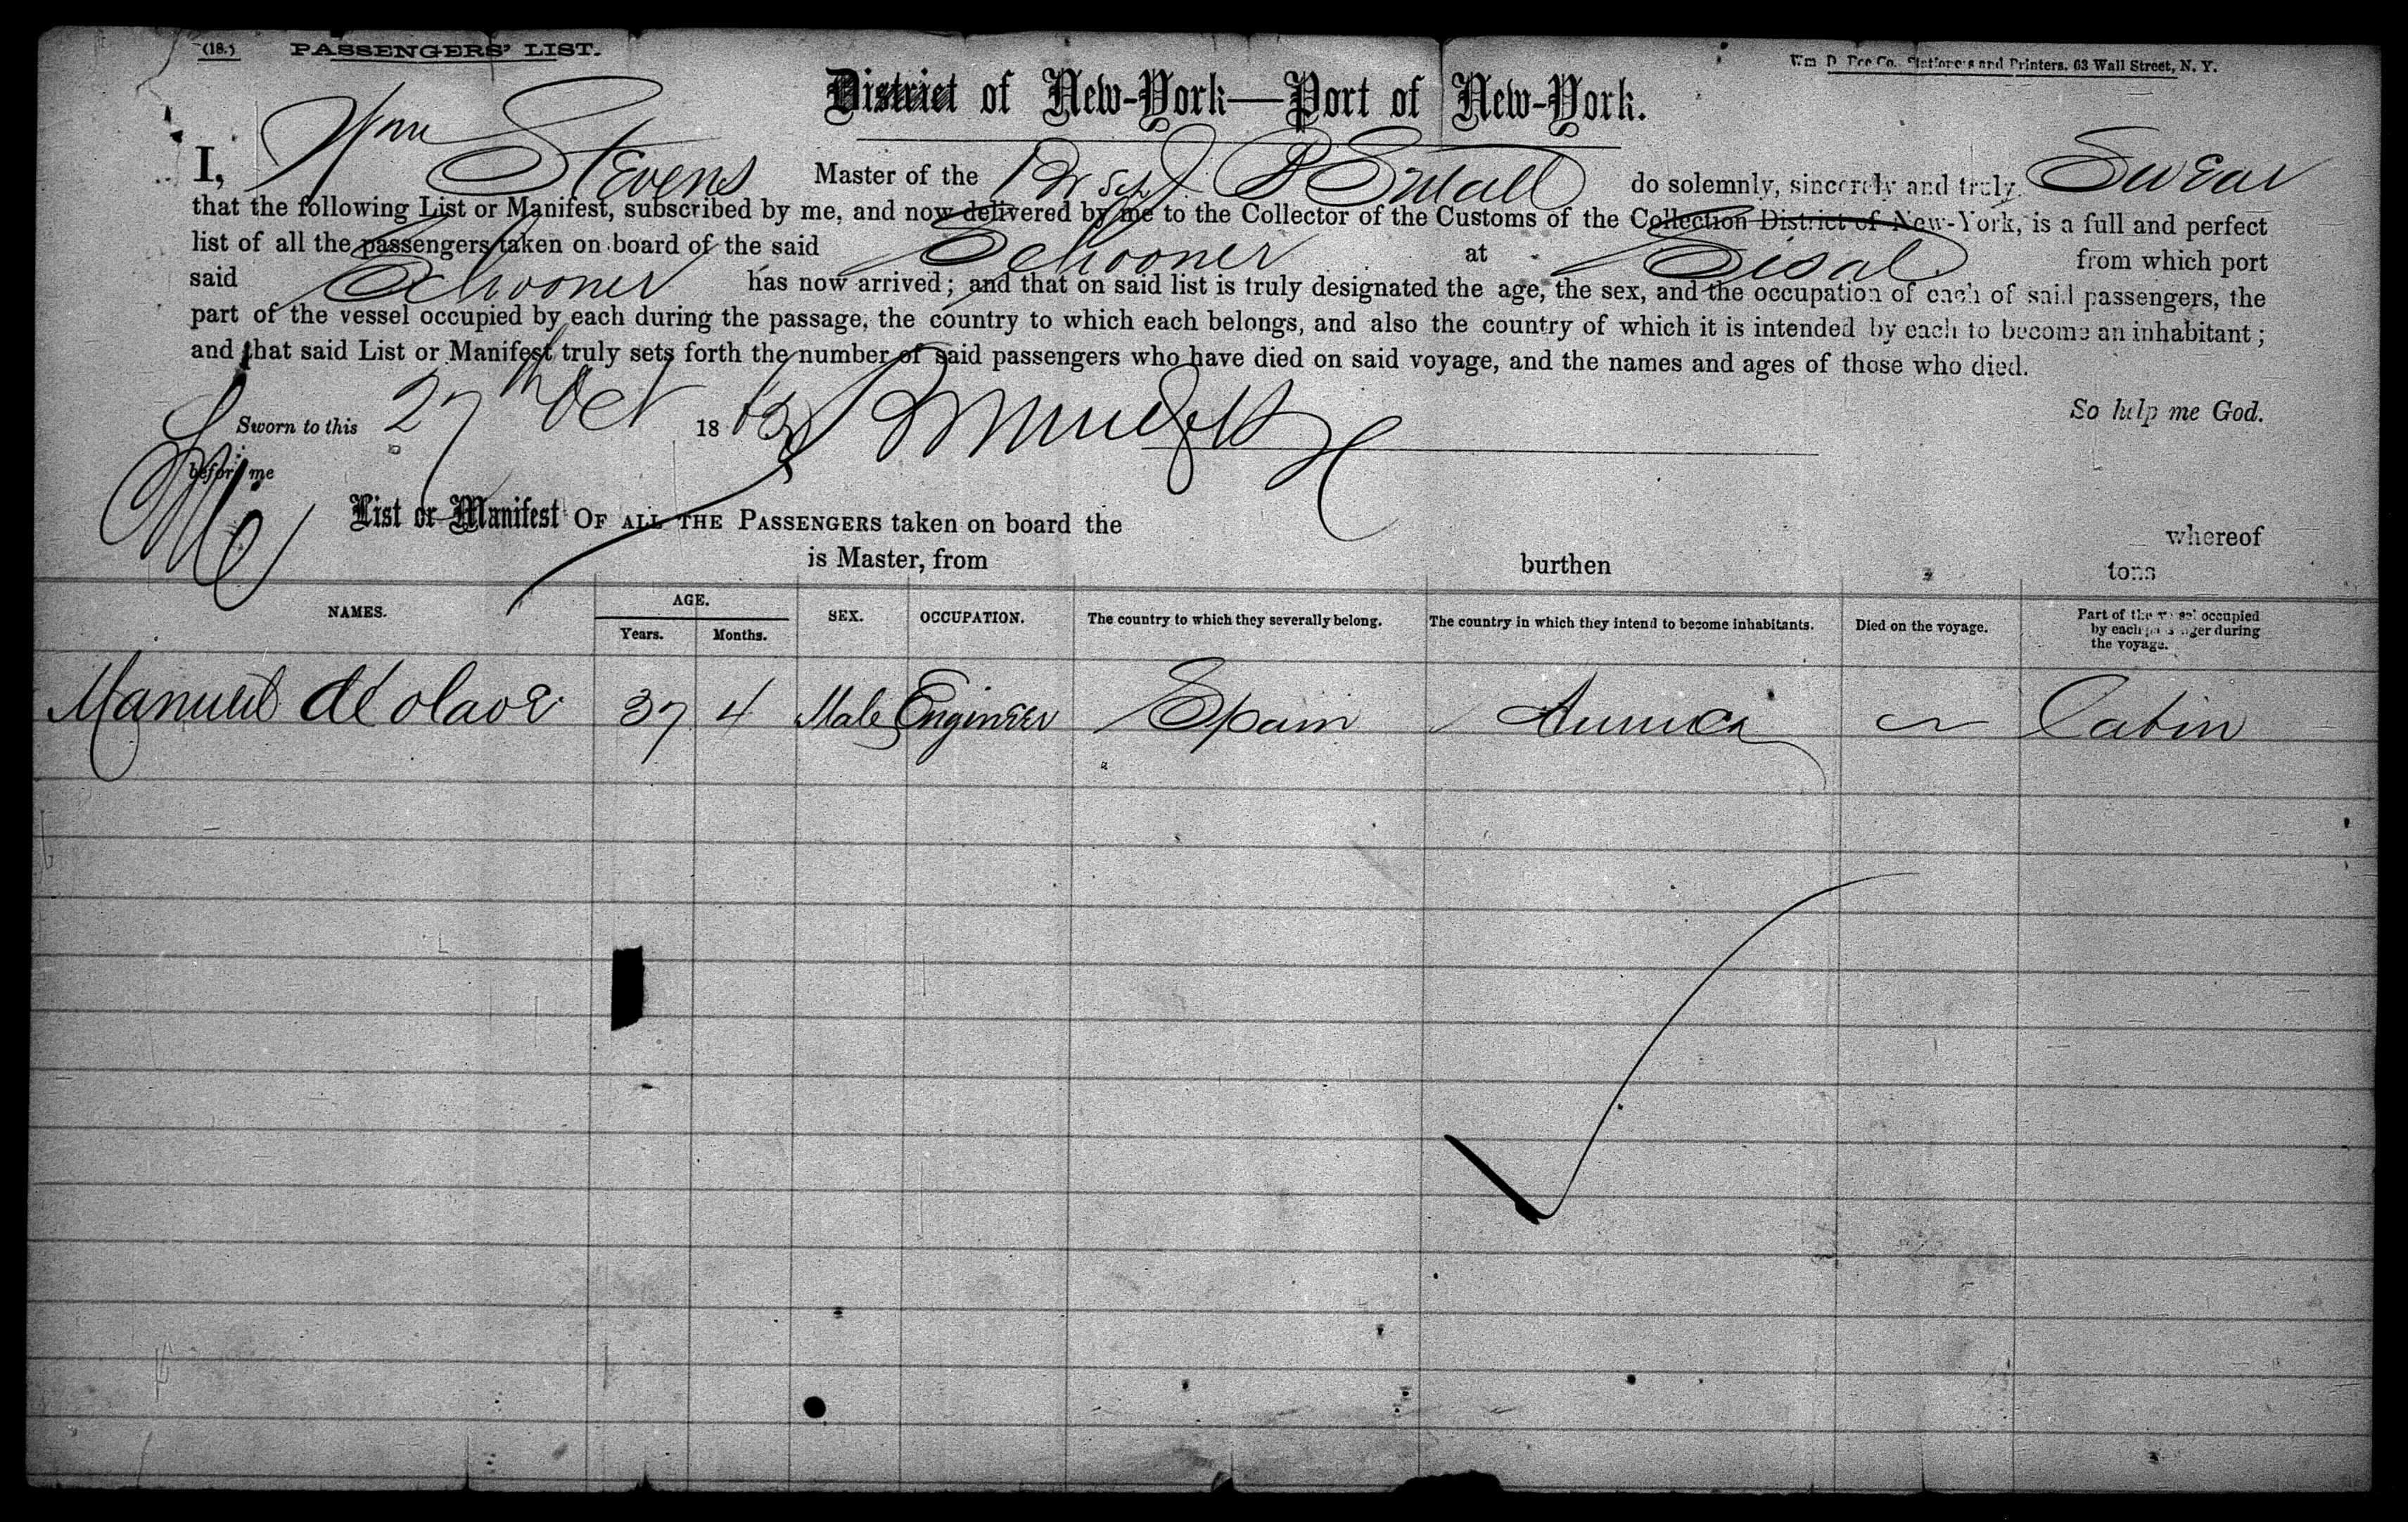 (18.) PASSENGERS' LIST.
Wm. D. Co. Stationers and Printers. 63 Wall Street, N. Y.
District of New-York—Port of New-York.
I, Wm Stevens Master of the Br Sch J B Small do solemnly, sincerely and truly Swear
that the following List or Manifest, subscribed by me, and now delivered by me to the Collector of the Customs of the Collection District of New-York, is a full and perfect
list of all the passengers taken on board of the said Schooner at Sisal from which port
said Schooner has now arrived; and that on said list is truly designated the age, the sex, and the occupation of each of said passengers, the
part of the vessel occupied by each during the passage, the country to which each belongs, and also the country of which it is intended by each to become an inhabitant;
and that said List or Manifest truly sets forth the number of said passengers who have died on said voyage, and the names and ages of those who died.
So help me God.
Sworn to this 27th Oct 18
before me
List or Manifest OF ALL THE PASSENGERS taken on board the whereof
is Master, from burthen tons
NAMES. AGE. Years. Months. SEX. OCCUPATION. The country to which they severally belong. The country in which they intend to become inhabitants. Died on the voyage. Part of the vessel occupied by each passenger during the voyage.
Manuel de olave 37 4 Male Engineer Spain America Cabin